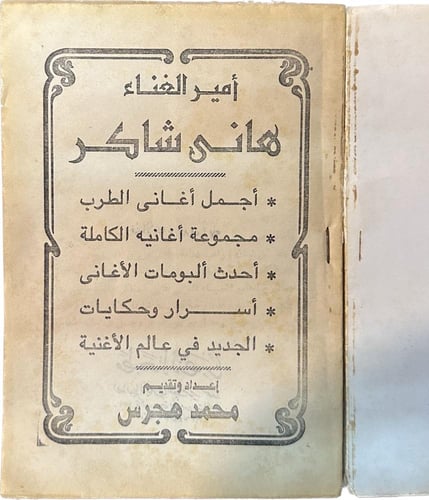 أمير الغناء
هانى شاكر
* أجمل أغانى الطرب
* مجموعة أغانيه الكاملة
* أحدث ألبومات الأغانى
* أسرار وحكايات
* الجديد في عالم الأغنية
إعداد وتقديم
محمد هجرس